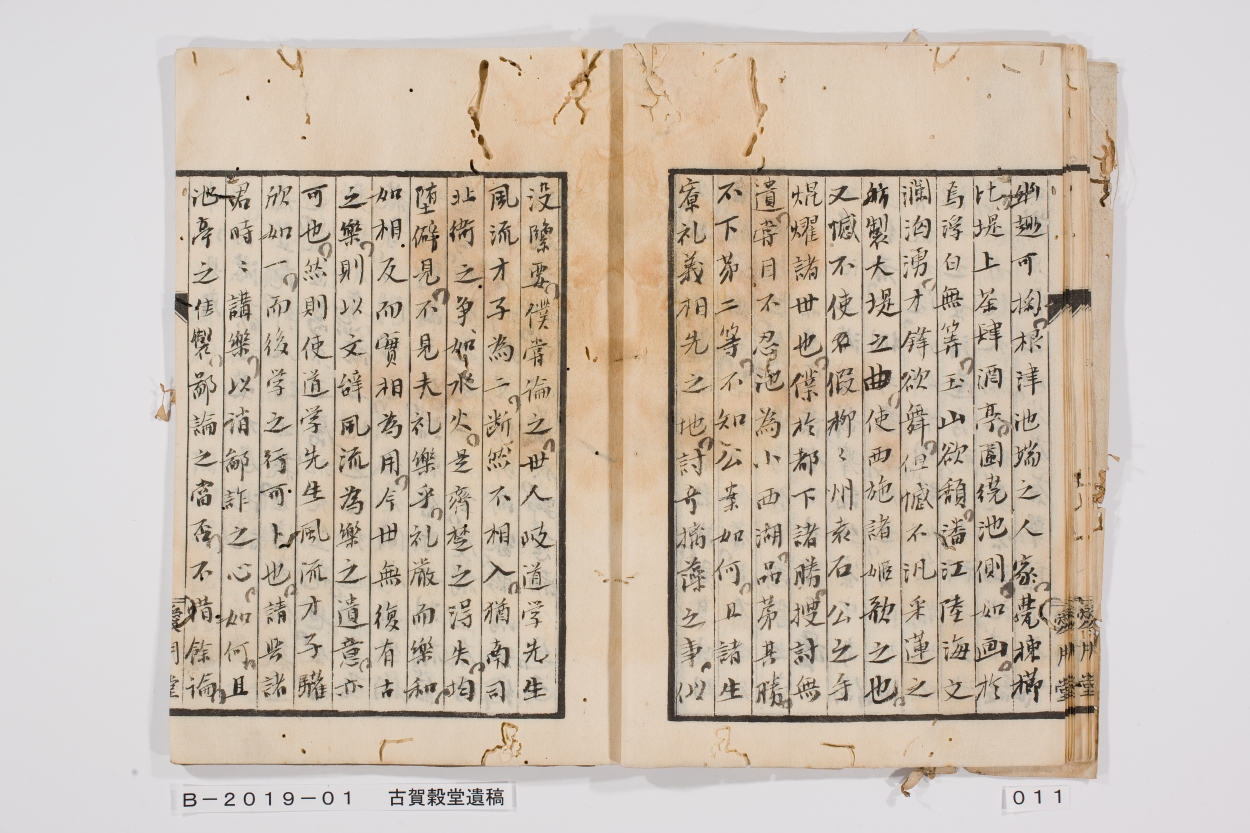 幽趣可掬根津池端之人家甍棟櫛
比堤上茶肆酒亭圍繞池側如画於
焉浮白無筭玉山欲頽潘江陸海文
瀾洶湧才鋒欲舞但憾不汎采蓮之
舫製大堤之曲使西施諸姬歌之也
又憾不使不假柳々州袁石公之手
焜燿諸世也僕於都下諸勝搜討無
遺嘗目不忍池為小西湖品第其勝
不下第二等不知公等如何且諸生
寮礼義相先之地討奇摛藻之事似
没緊要僕嘗論之世人岐道学先生
風流才子為二断然不相入猶南司
北衙之争如氷火是齊楚之得失均
堕僻見不見夫礼樂乎礼厳而樂和
如相反而實相為用今世無復有古
之樂則以文辞風流為樂之遺意亦
可也然則使道学先生風流才子驩
欣如一而後学之行可卜也請与諸
君時々講樂以消鄙詐之心如何且
池亭之佳製鄙論之當否不惜餘論
愛月堂
B－2019－01　古賀穀堂遺稿
011